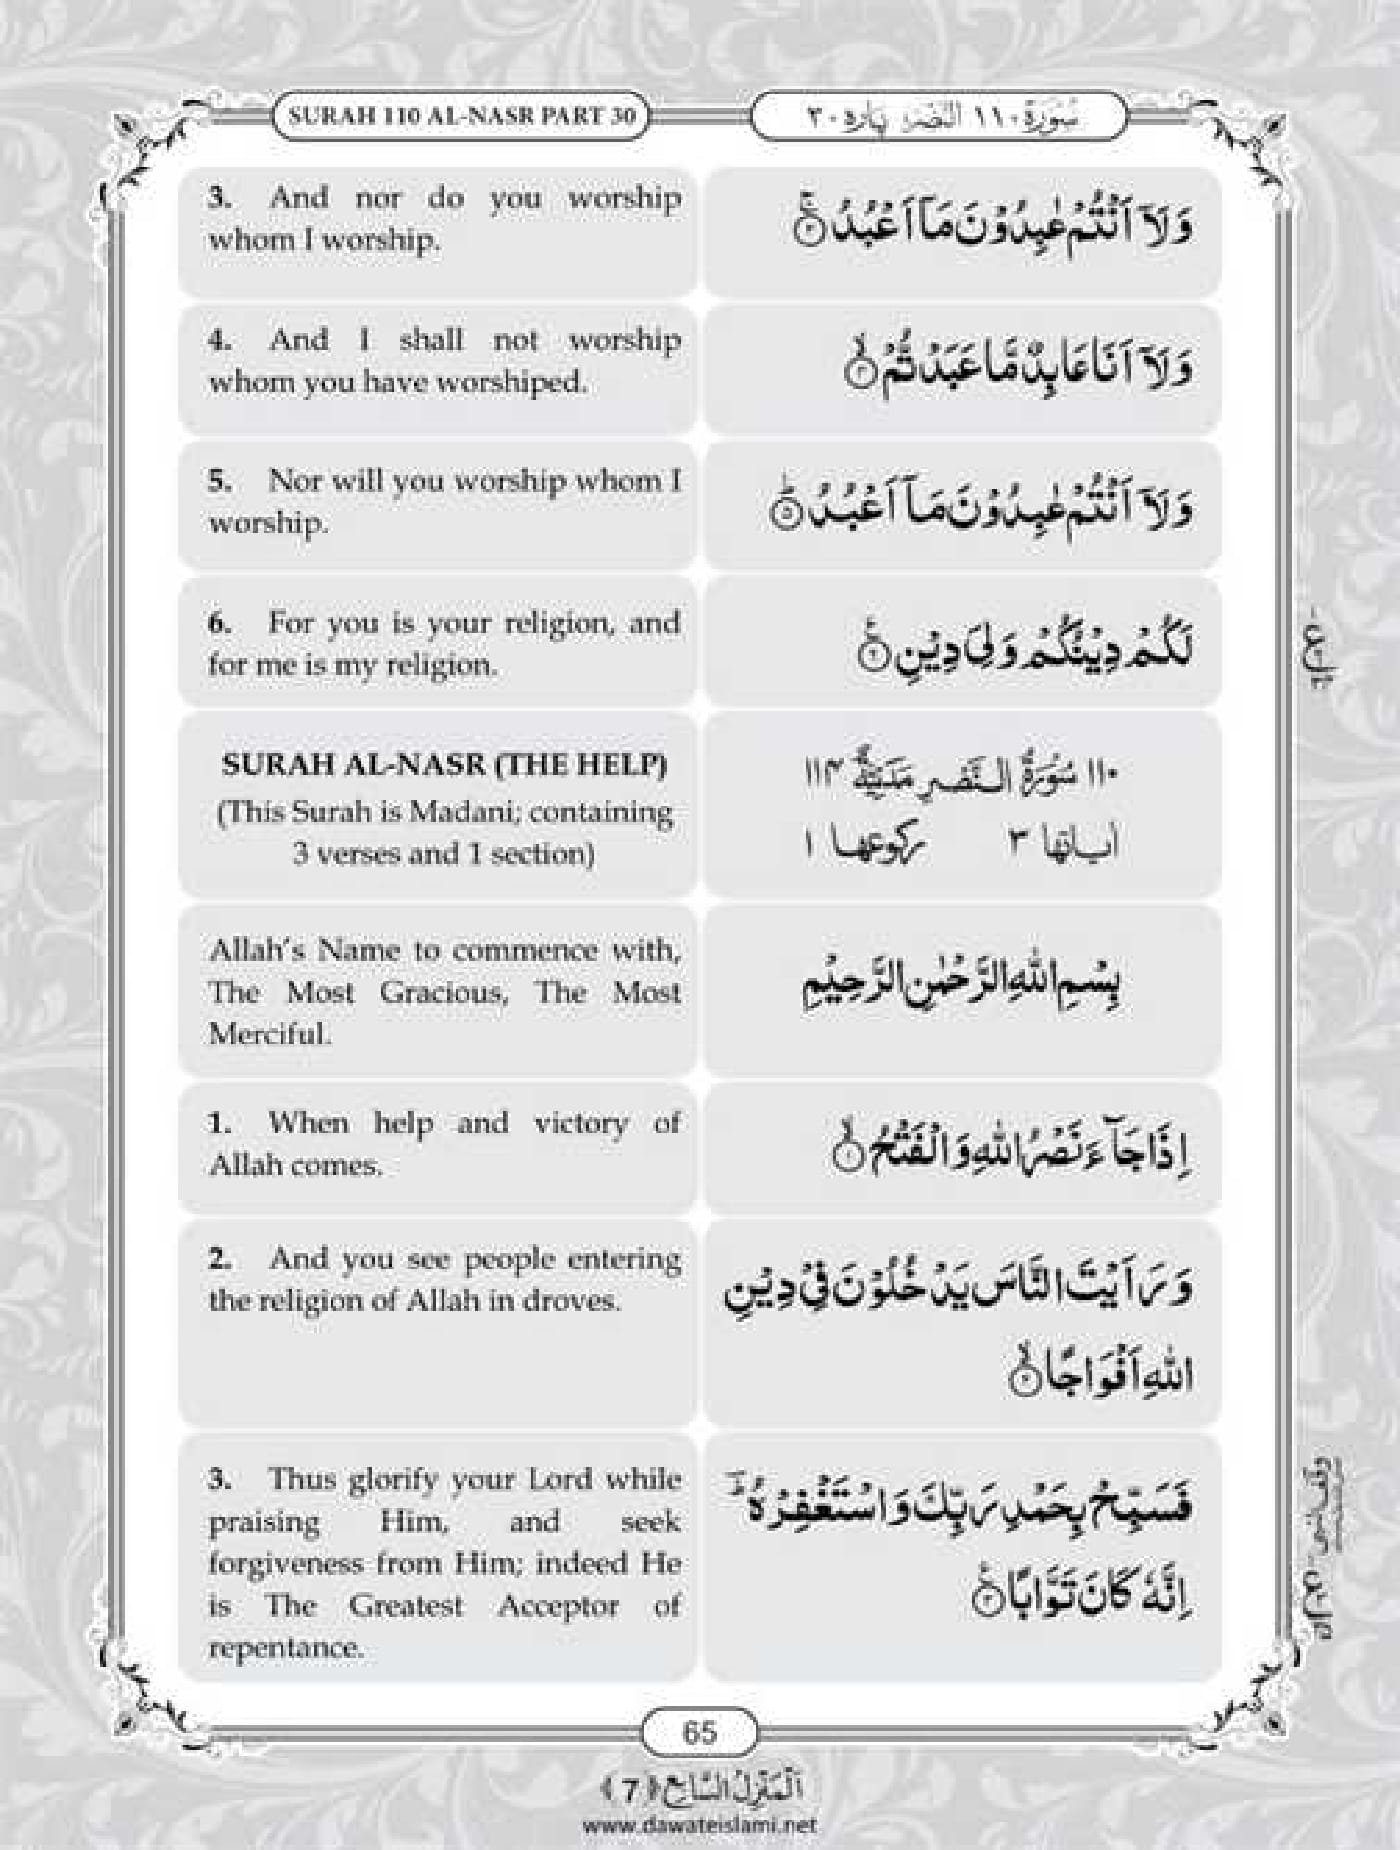 SURAH 110 AL-NASR PART 30
سُوْرَة ١١٠ النَّصْر پاره ٣٠
3. And nor do you worship
whom I worship.
وَلَاۤ اَنْتُمْ عٰبِدُوْنَ مَاۤ اَعْبُدُ ۚ﴿۳﴾
4. And I shall not worship
whom you have worshiped.
وَلَاۤ اَنَا عَابِدٌ مَّا عَبَدْتُّمْ ۙ﴿۴﴾
5. Nor will you worship whom I
worship.
وَلَاۤ اَنْتُمْ عٰبِدُوْنَ مَاۤ اَعْبُدُ ؕ﴿۵﴾
6. For you is your religion, and
for me is my religion.
لَكُمْ دِيْنُكُمْ وَلِيَ دِيْنِ ۠﴿۶﴾
SURAH AL-NASR (THE HELP)
(This Surah is Madani; containing
3 verses and 1 section)
١١٠ سُوْرَةُ النَّصْرِ مَدَنِيَّةٌ ١١۴
اٰیاتها ٣ رکوعها ١
Allah's Name to commence with,
The Most Gracious, The Most
Merciful.
بِسْمِ اللّٰهِ الرَّحْمٰنِ الرَّحِيْمِ
1. When help and victory of
Allah comes.
اِذَا جَآءَ نَصْرُ اللّٰهِ وَالْفَتْحُ ۙ﴿۱﴾
2. And you see people entering
the religion of Allah in droves.
وَرَاَيْتَ النَّاسَ يَدْخُلُوْنَ فِيْ دِيْنِ
اللّٰهِ اَفْوَاجًا ۙ﴿۲﴾
3. Thus glorify your Lord while
praising Him, and seek
forgiveness from Him; indeed He
is The Greatest Acceptor of
repentance.
فَسَبِّحْ بِحَمْدِ رَبِّكَ وَاسْتَغْفِرْهُ ؔؕ
اِنَّهٗ كَانَ تَوَّابًا ۠﴿۳﴾
65
اَلْمَنْزِلُ السَّابِع ﴿7﴾
www.dawateislami.net